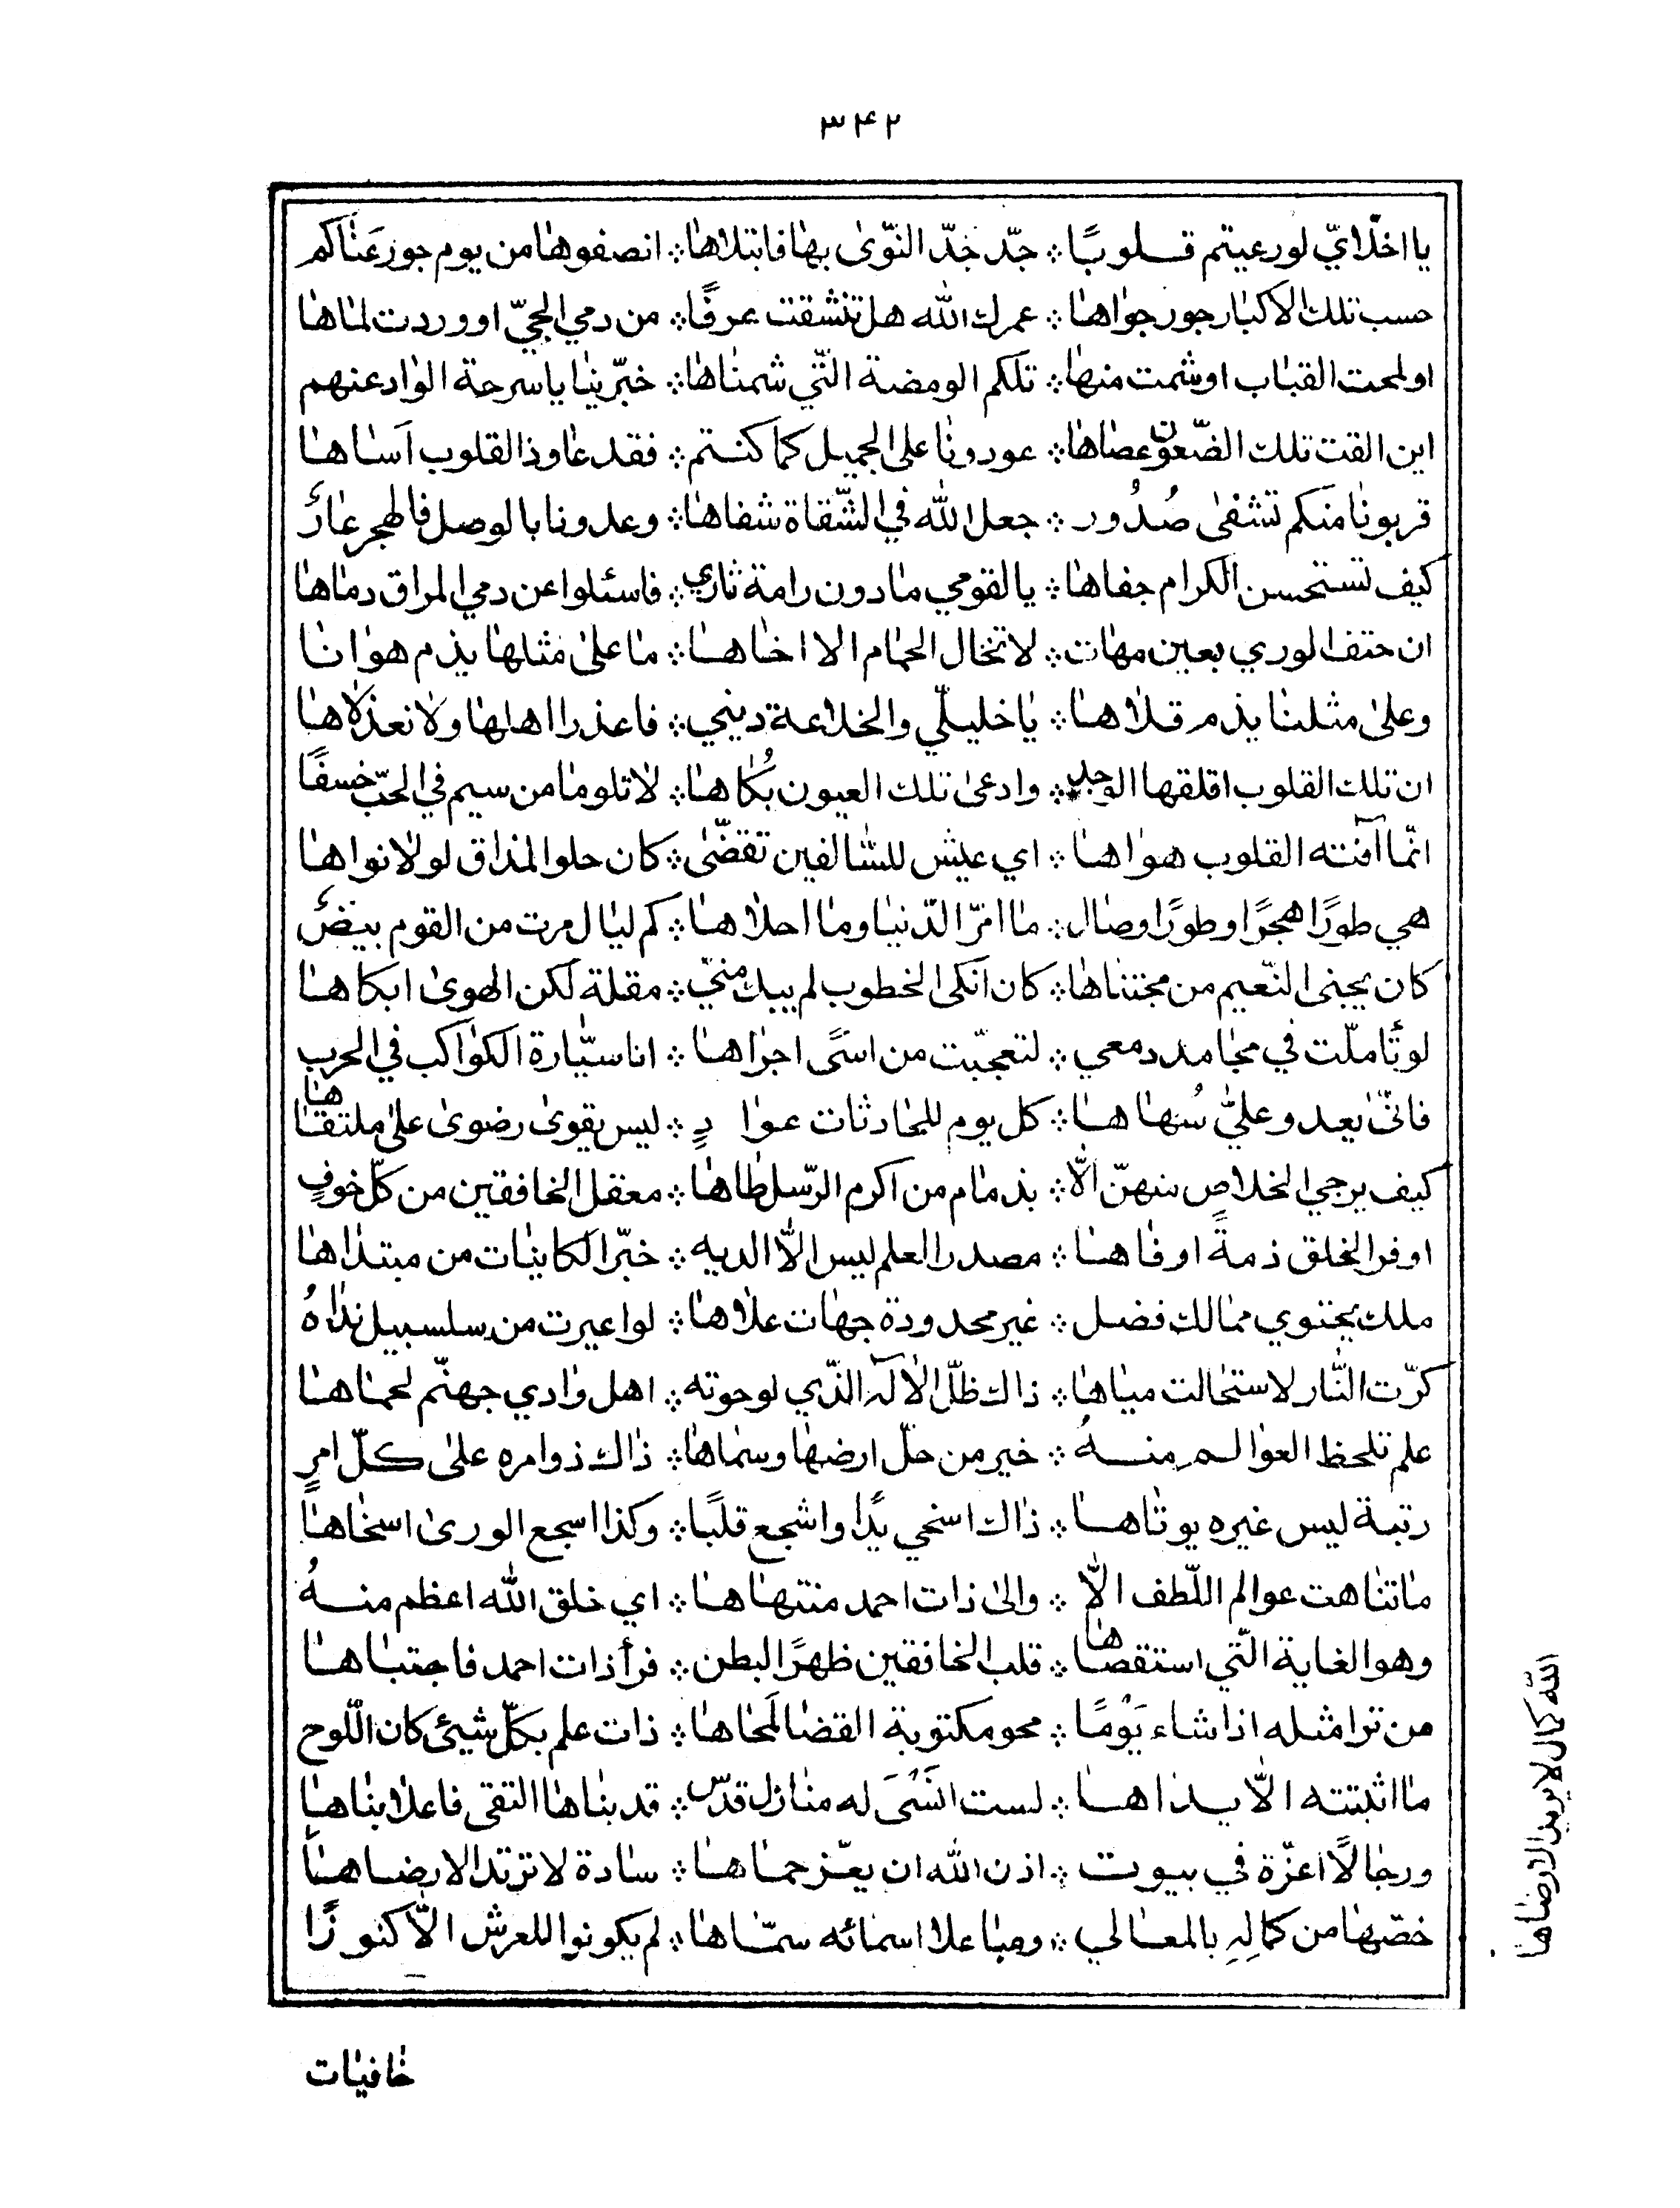 ٣٤٢
يا اخلّايّ لو رعيتم قلوبًا ❊ جدّ جدّ النّوىٰ بها فابتلاها ❊ انصفوها من يوم جور عناكم
حسب تلك الاكبار جور جواها ❊ عمرك الله هل تنشقت عرفًا ❊ من دمي الحيّ او وردت لماها
او لمحت القباب او شمت منها ❊ تلكم الومضة الّتي شمناها ❊ خبّرينا يا سرحة الواد عنهم
اين القت تلك الضّعون عصاها ❊ عودونا على الجميل كما كنتم ❊ فقد عاوذ القلوب آساها
قربونا منكم تشفىٰ صُدُور ❊ جعل الله في الشّقاة شفاها ❊ وعدونا بالوصل فالهجر عارٌ
كيف تستحسن الكرام جفاها ❊ يالقومي مادون رامة ثاري ❊ فاسئلوا عن دمي المراق دماها
ان حتف الوري بعين مهات ❊ لا تخال الحمام الا اخاها ❊ ما علىٰ مثلها يذم هوانا
وعلىٰ مثلنا يذم قلاها ❊ يا خليليّ والخلاعة ديني ❊ فاعذرا اهلها ولا تعذلاها
ان تلك القلوب اقلقها الوجد ❊ وادعىٰ تلك العيون بُكاها ❊ لا تلوما من سيم في الحبّ خسفًا
انّما آفته القلوب هواها ❊ اي عيش للسّالفين تقضّىٰ ❊ كان حلو المذاق لولا نواها
هي طورًا هجرًا وطورًا وصال ❊ ما امرّ الدّنيا وما احلاها ❊ كم ليال مرت من القوم بيضٌ
كان يجنى النّعيم من مجتناها ❊ كان انكى الخطوب لم يبك منيّ ❊ مقلة لكن الهوىٰ ابكاها
لو تأملّت في مجامد دمعي ❊ لتعجّبت من اسًى اجراها ❊ انا سيّارة الكواكب في الحرب
فانّىٰ يعد وعليّ سُهاها ❊ كل يوم للحادثات عوادٍ ❊ ليس يقوىٰ رضوىٰ علىٰ ملتقاها
كيف يرجي الخلاص منهنّ الّا ❊ بذمام من اكرم الرّسل طاها ❊ معقل الخافقين من كلّ خوفٍ
اوفر الخلق ذمةً اوفاها ❊ مصدر العلم ليس الّا لديه ❊ خبّر الكاينات من مبتداها
ملك يحتوي ممالك فضل ❊ غير محدودة جهات علاها ❊ لو اعيرت من سلسبيل نداهُ
كرّت النّار لاستحالت مياها ❊ ذاك ظلّ الآله الّذي لو حوته ❊ اهل وادي جهنّم لحماها
علم تلحظ العوالم منهُ ❊ خير من حلّ ارضها وسماها ❊ ذاك ذو امره علىٰ كلّ امرٍ
رتبة ليس غيره يوتاها ❊ ذاك اسخي يدًا واشجع قلبًا ❊ وكذا اسجع الورىٰ اسخاها
ما تناهت عوالم اللّطف الّا ❊ والىٰ ذات احمد منتهاها ❊ اي خلق الله اعظم منهُ
وهو الغاية الّتي استقصاها ❊ قلب الخافقين ظهرًا لبطن ❊ فرأ ذات احمد فاجتباها
من ترا مثله اذا شاء يَوْمًا ❊ محو مكتوبة القضا لمحاها ❊ ذات علم بكلّ شيئ كان اللّوح
ما اثبتته الّا يداها ❊ لست انْسَىٰ له منازل قدّس ❊ قد بناها التقى فاعلا بناها
ورجالًا اعزّة في بيوت ❊ اذن الله ان يعّز حماها ❊ سادة لا ترتد الا رضاها
خصّها من كمالِهِ بالمعالي ❊ وحبا علا اسمائه سمّاها ❊ لم يكونوا للعرش الّا كنوزًا
الله كمال لا يريد الا رضاها
خافيات